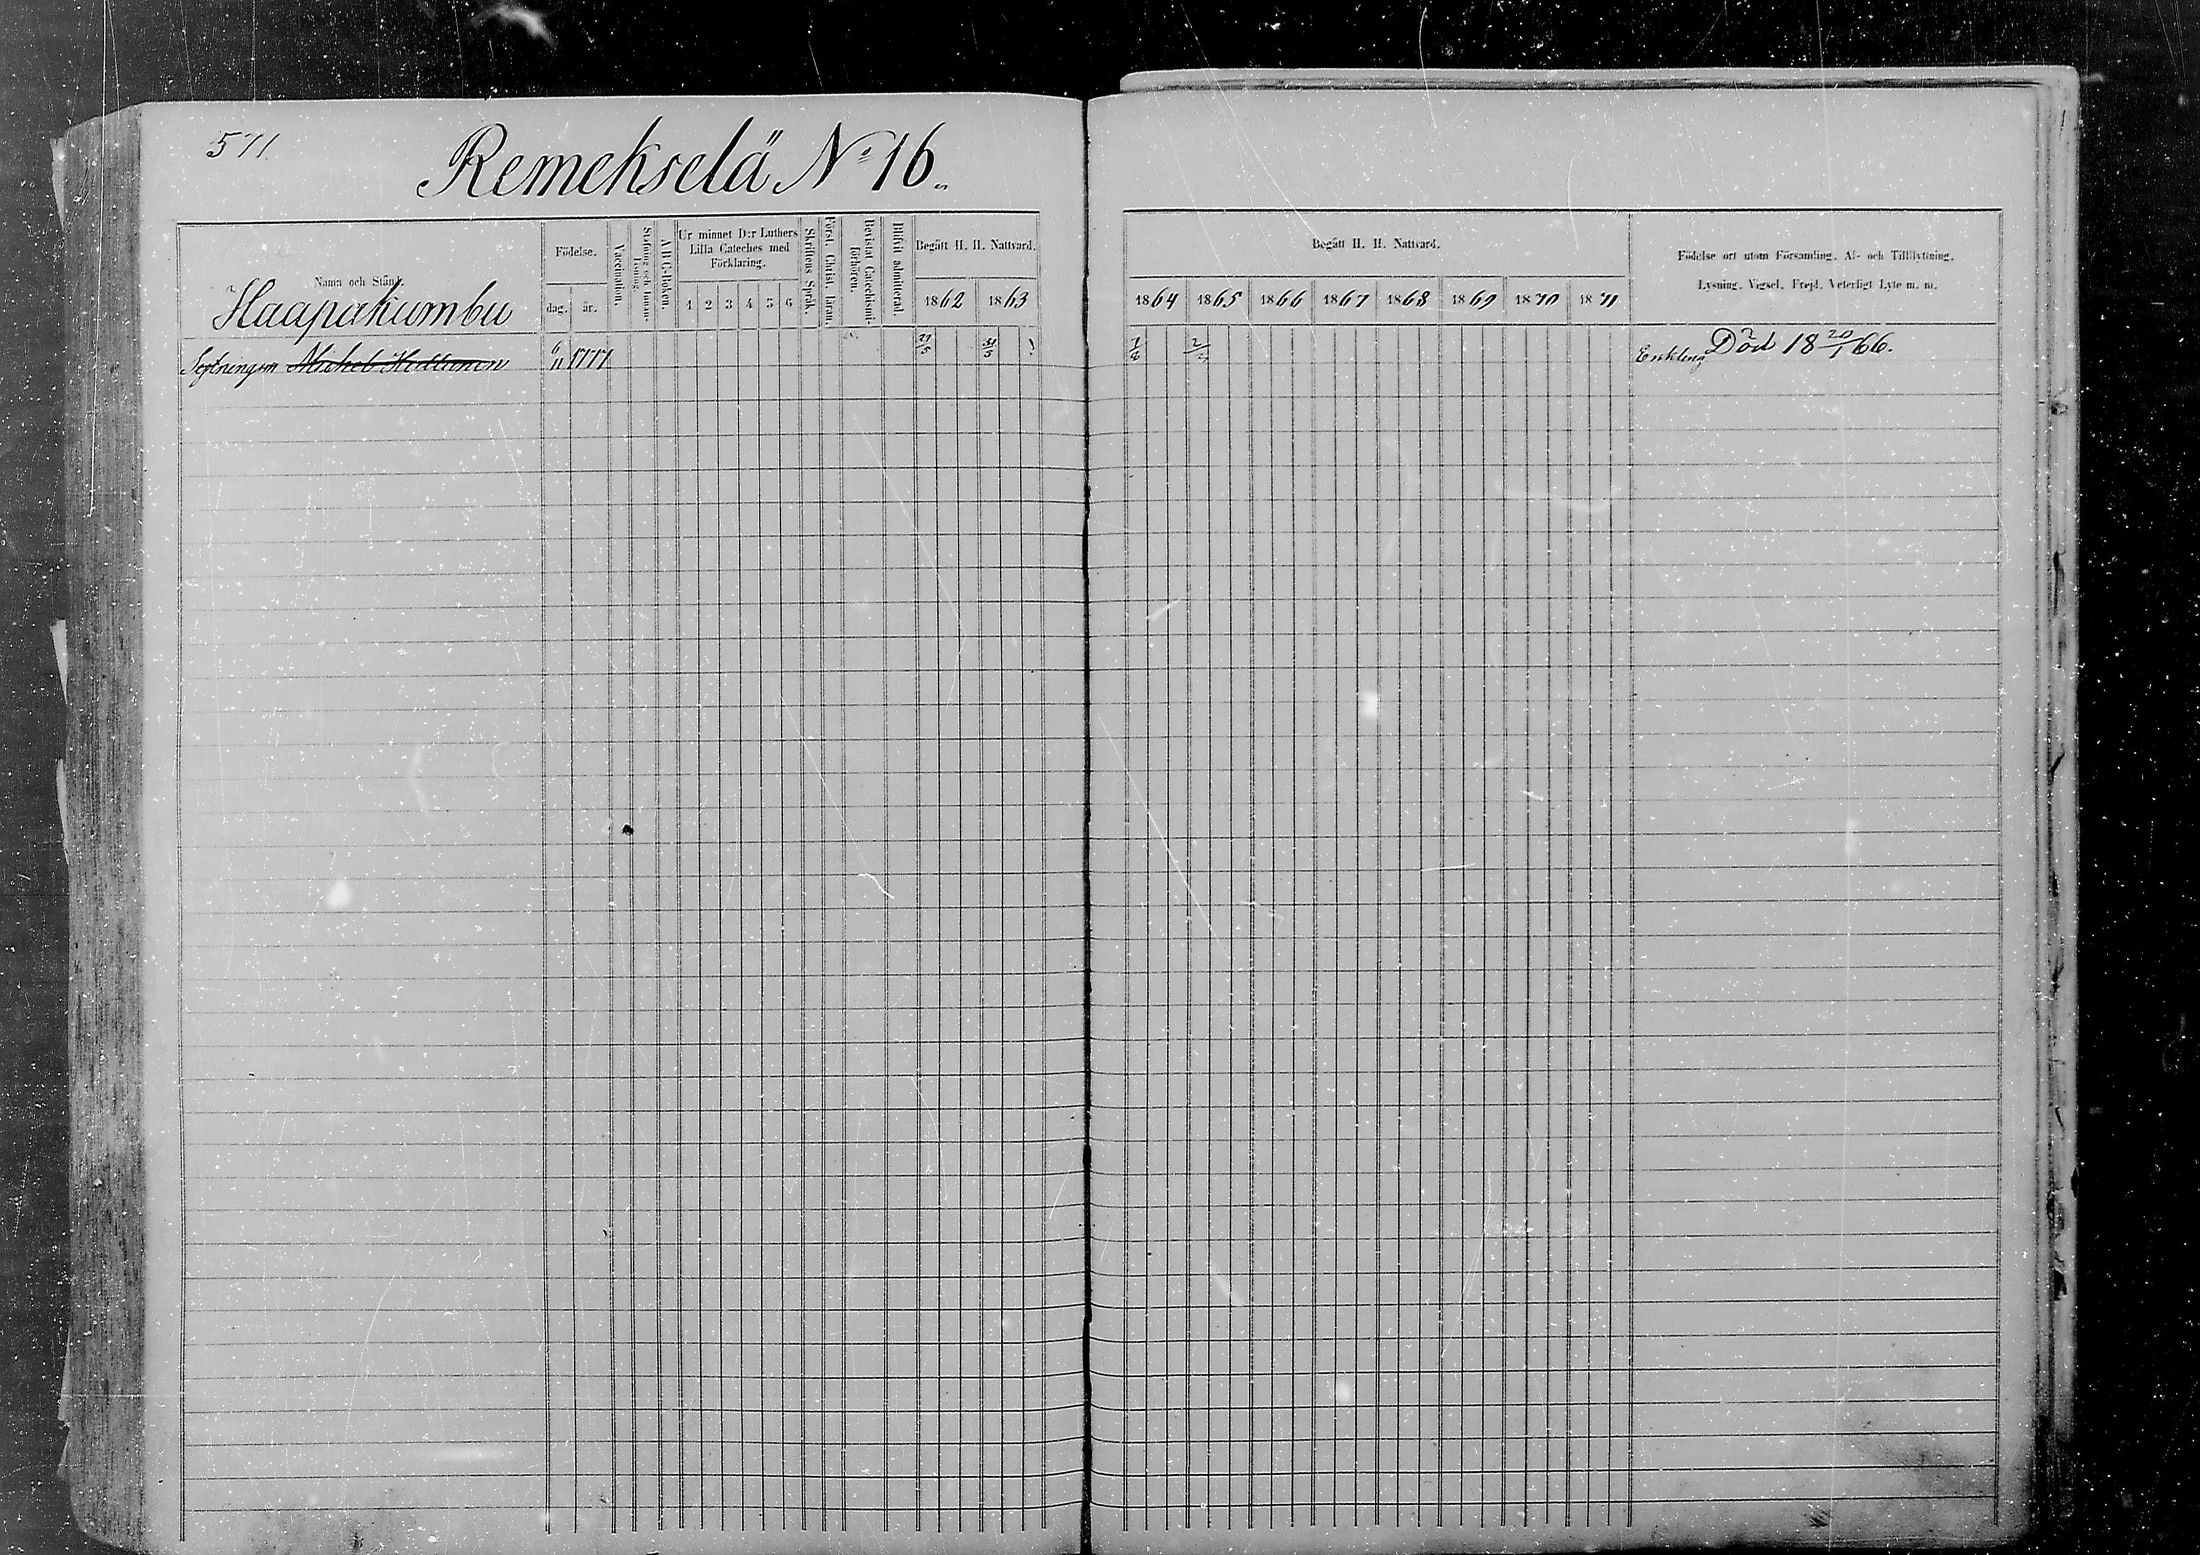 571.
Remekselä No 16.
Namn och Stånd.
Haapakumbu
Födelse.
dag. år.
Vaccination.
Stafning och Innanläsning.
A B C-Boken.
Ur minnet D:r Luthers
Lilla Cateches med
Förklaring.
1 2 3 4 5 6
Skriftens Språk.
Först. Christ. läran.
Bevistat Catechismi-
förhören.
Blifvit admitterad.
Begått H. H. Nattvard.
1862 1863
Sytningsm Michel Hiltunen 6/11 1777 21/5 31/5
Begått H. H. Nattvard.
1864 1865 1866 1867 1868 1869 1870 1871
Födelse ort utom Församling. Af- och Tillflyttning.
Lysning. Vigsel. Frejd. Veterligt Lyte m. m.
Enkling Död 18 20/1 66.